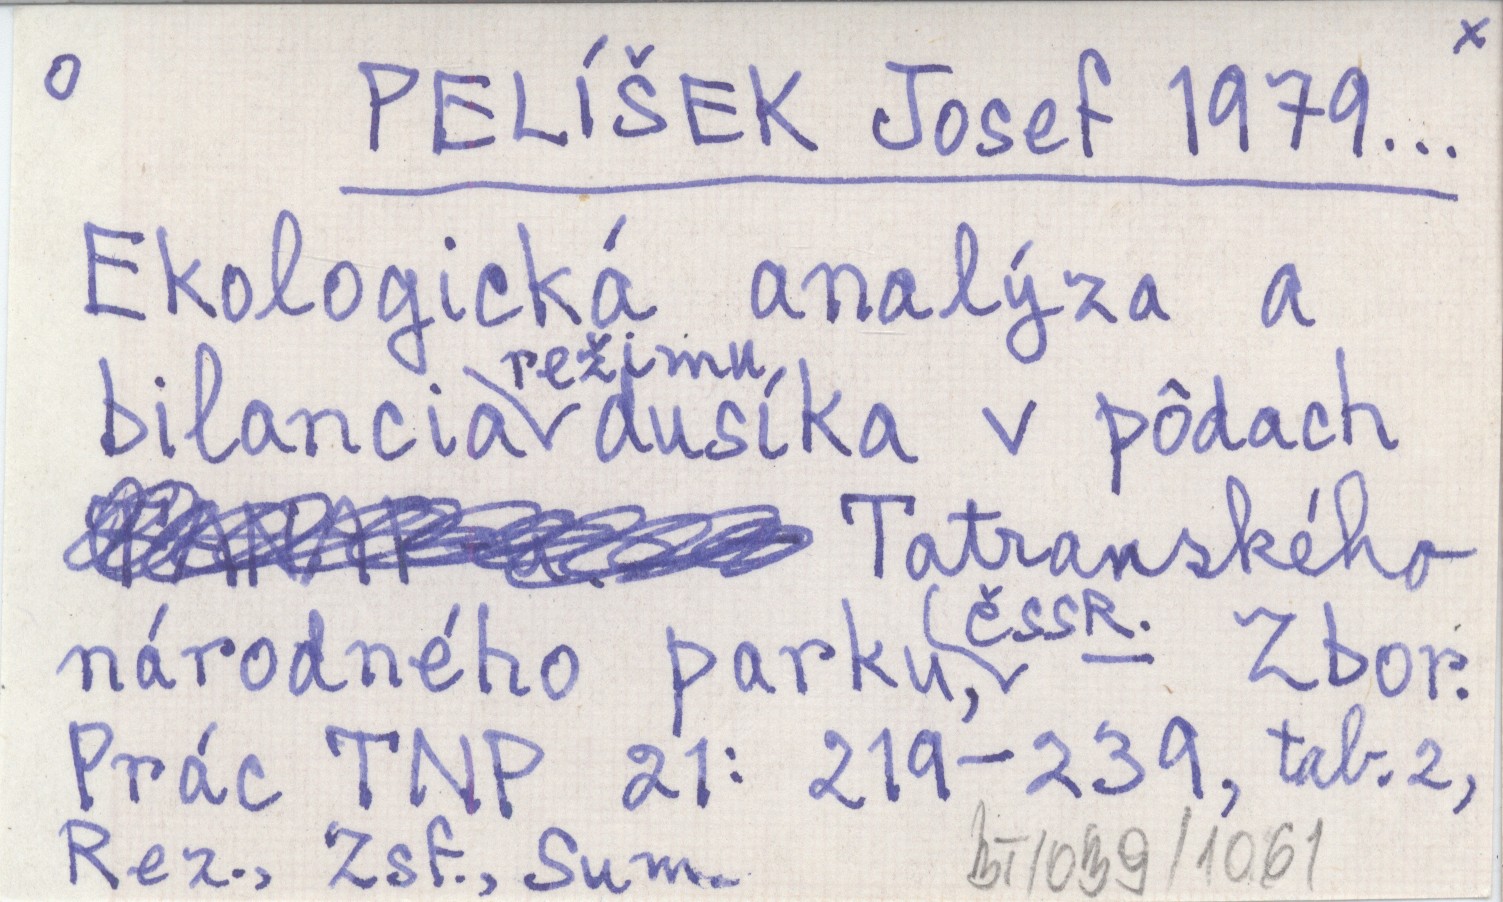 o PELÍŠEK Josef 1979... x
Ekologická analýza a
bilancia režimu dusíka v pôdach
Tatranského
národného parku, ČSSR. — Zbor.
Prác TNP 21: 219–239, tab. 2,
Rez., Zsf., Sum.